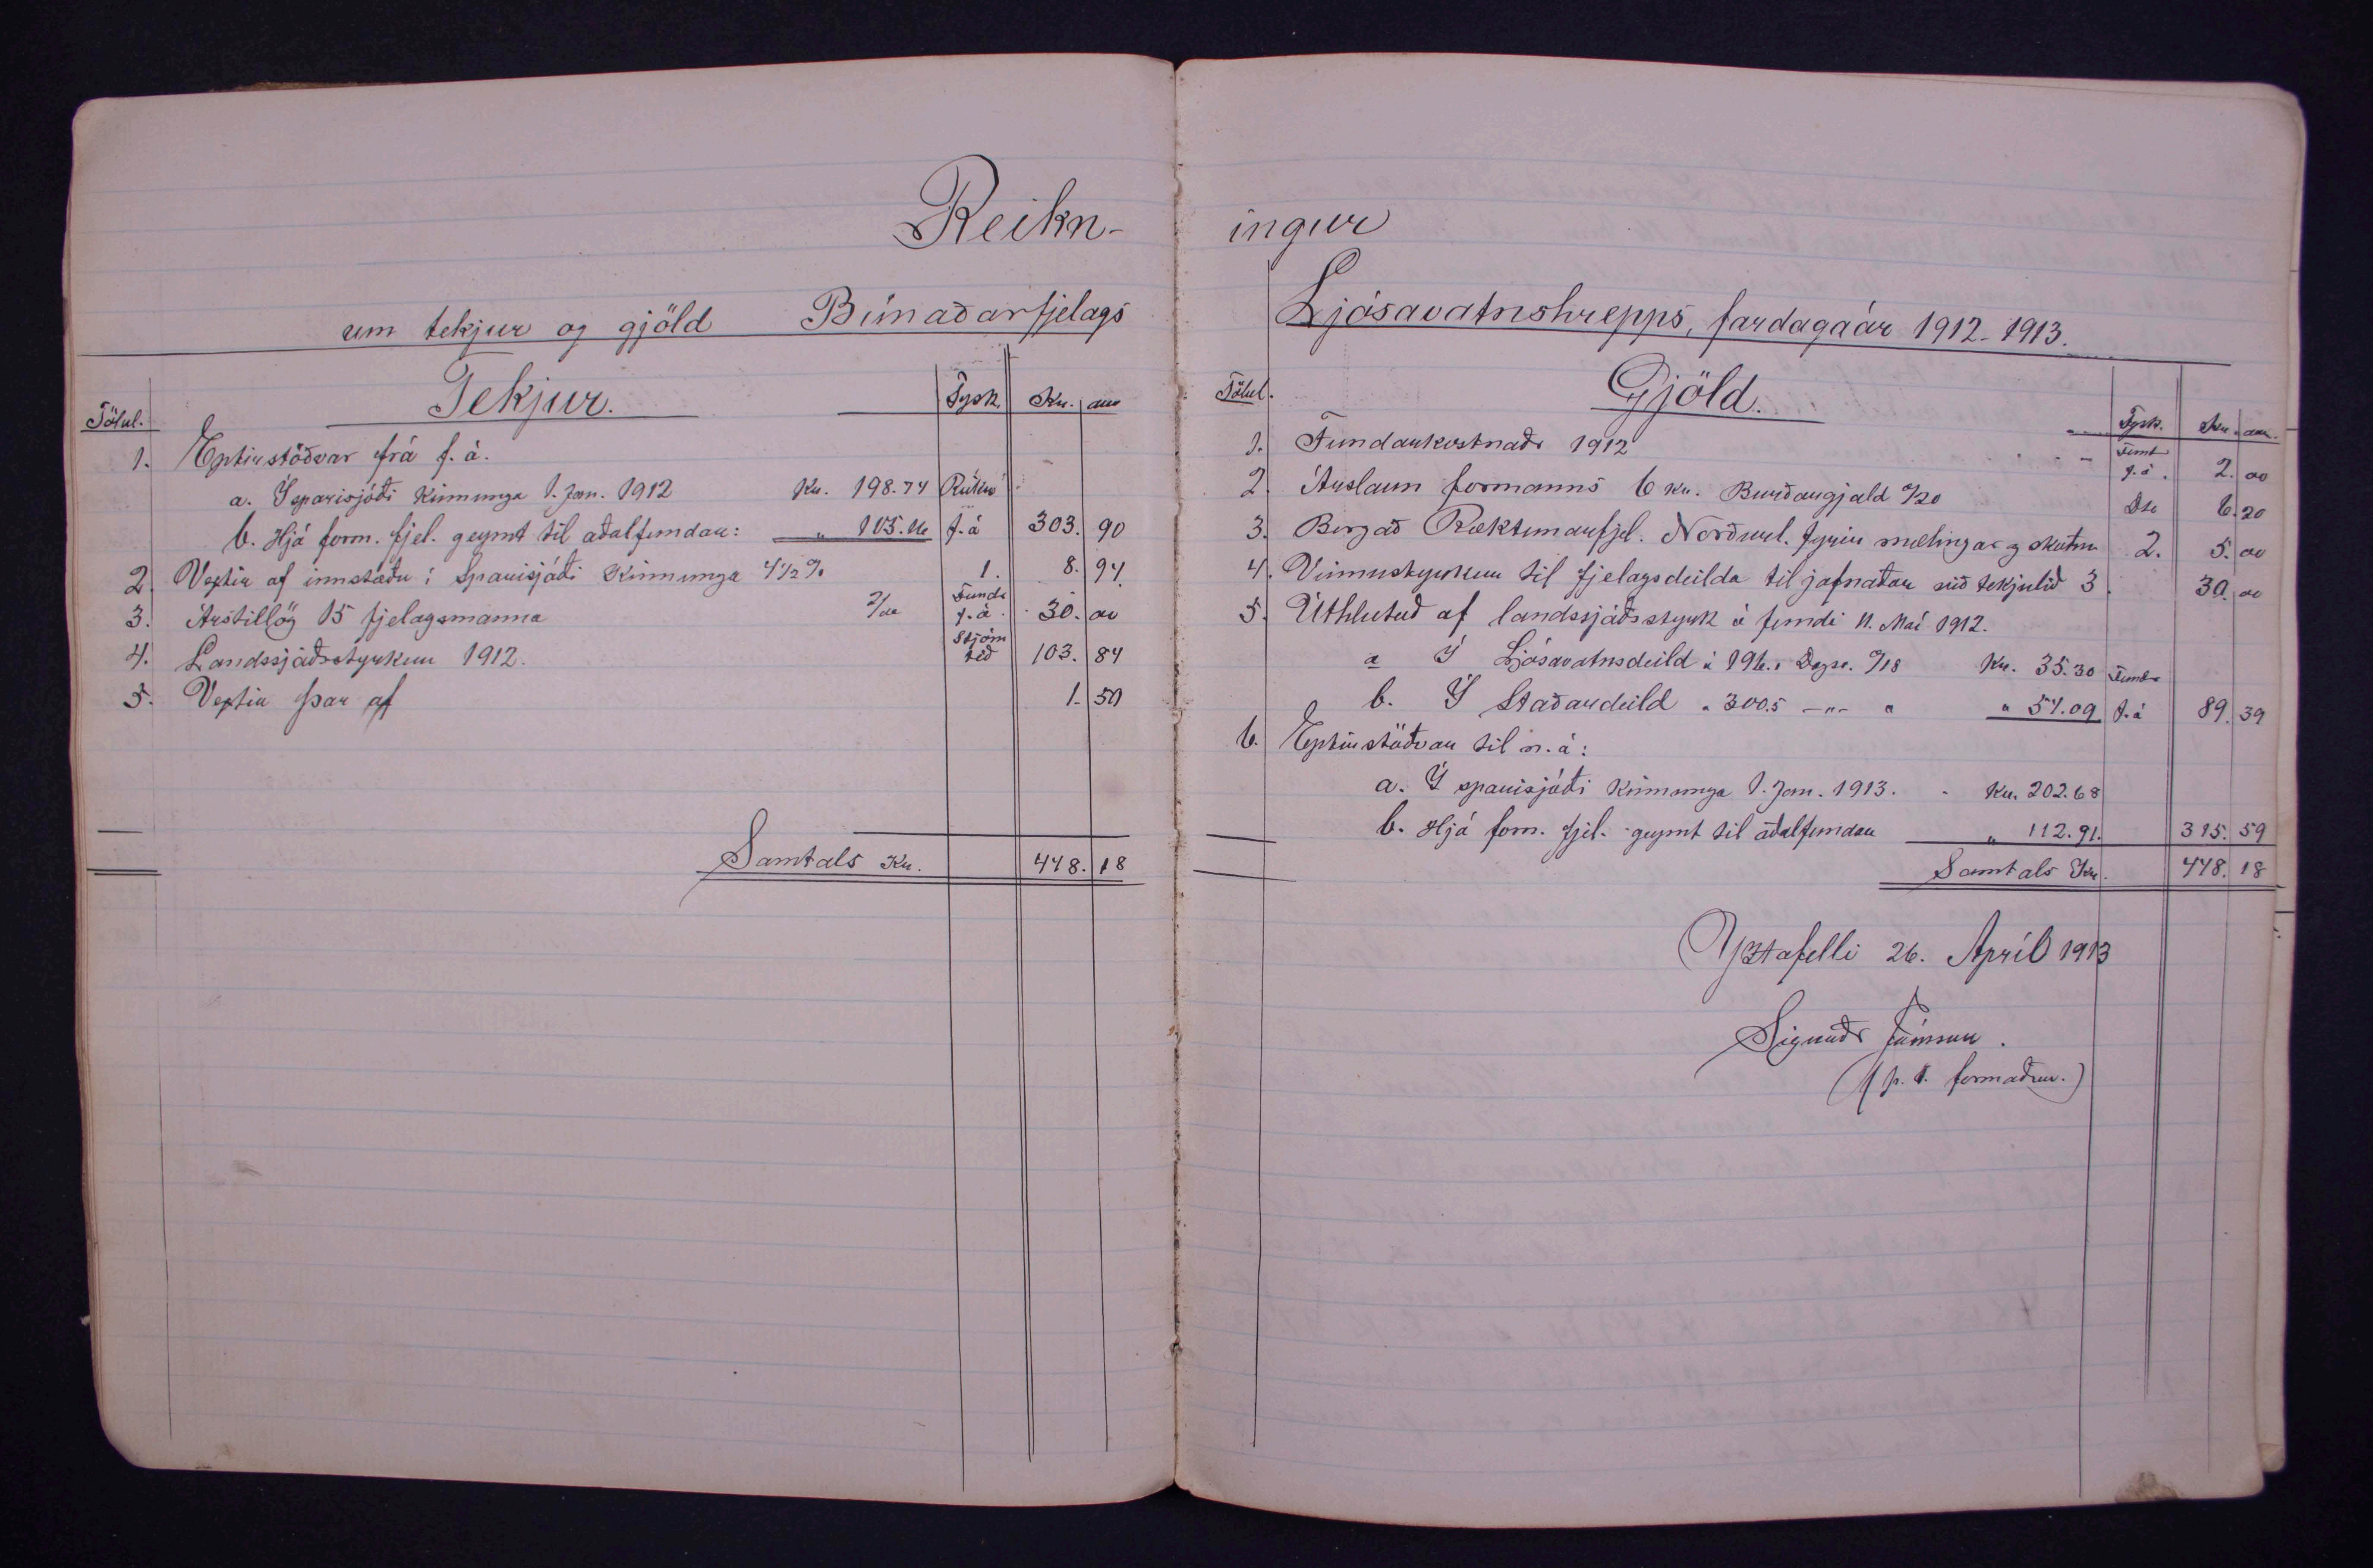 Reikn-
um tekjur og gjöld Búnaðarfjelags
Tekjur.
Tölul. Fysk. Kr. aur
1. Eptirstöðvar frá f. á.
a. Í sparisjóði Kinnunga 1. Jan. 1912 Kr. 198.74
b. Hjá form. fjel. geymt til aðalfundar: „ 105.16 f. á 303. 90
2. Vextir af innstæðu í Sparisjóði Kinnunga 4 1/2 % 1. 8. 94
3. Árstillög 15 fjelagsmanna 2/00 Fundr f. á. 30. 00
4. Landssjóðsstyrkur 1912. Stjórn ted 103. 84
5. Vextir þar af 1. 50
Samtals Kr. 448. 18
ingur
Ljósavatnshrepps, fardagaár 1912-1913.
Gjöld.
Tölul. Fysk. Kr. aur.
1. Fundarkostnaðr 1912 Fundr f. á. 2. 00
2. Árslaun formanns 6 kr. Burðargjald 0/20 Do 6. 20
3. Borgað Ræktunarfjel. Norðurl. fyrir mælingar og 2. 5. 00
4. Vinnustyrkur til fjelagsdeilda til jafnaðar við tekjulið 3. 30. 00
5. Úthlutað af landssjóðsstyrk á fundi 11. Maí 1912.
a Í Ljósavatnsdeild á 196.1 Dagsv. 0/18 Kr. 35.30 Fundr
b. Í Staðardeild „ 300.5 -„- „ „ 54.09 f. á 89. 39
6. Eptirstöðvar til n. á:
a. Í sparisjóði Kinnunga 1. Jan. 1913. Kr. 202.68
b. Hjá form. fjel. geymt til aðalfundar „ 112.91. 315. 59
Samtals Kr. 448. 18
Yztafelli 26. Apríl 1913
Sigurðr Jónsson.
(p. t. formaður.)